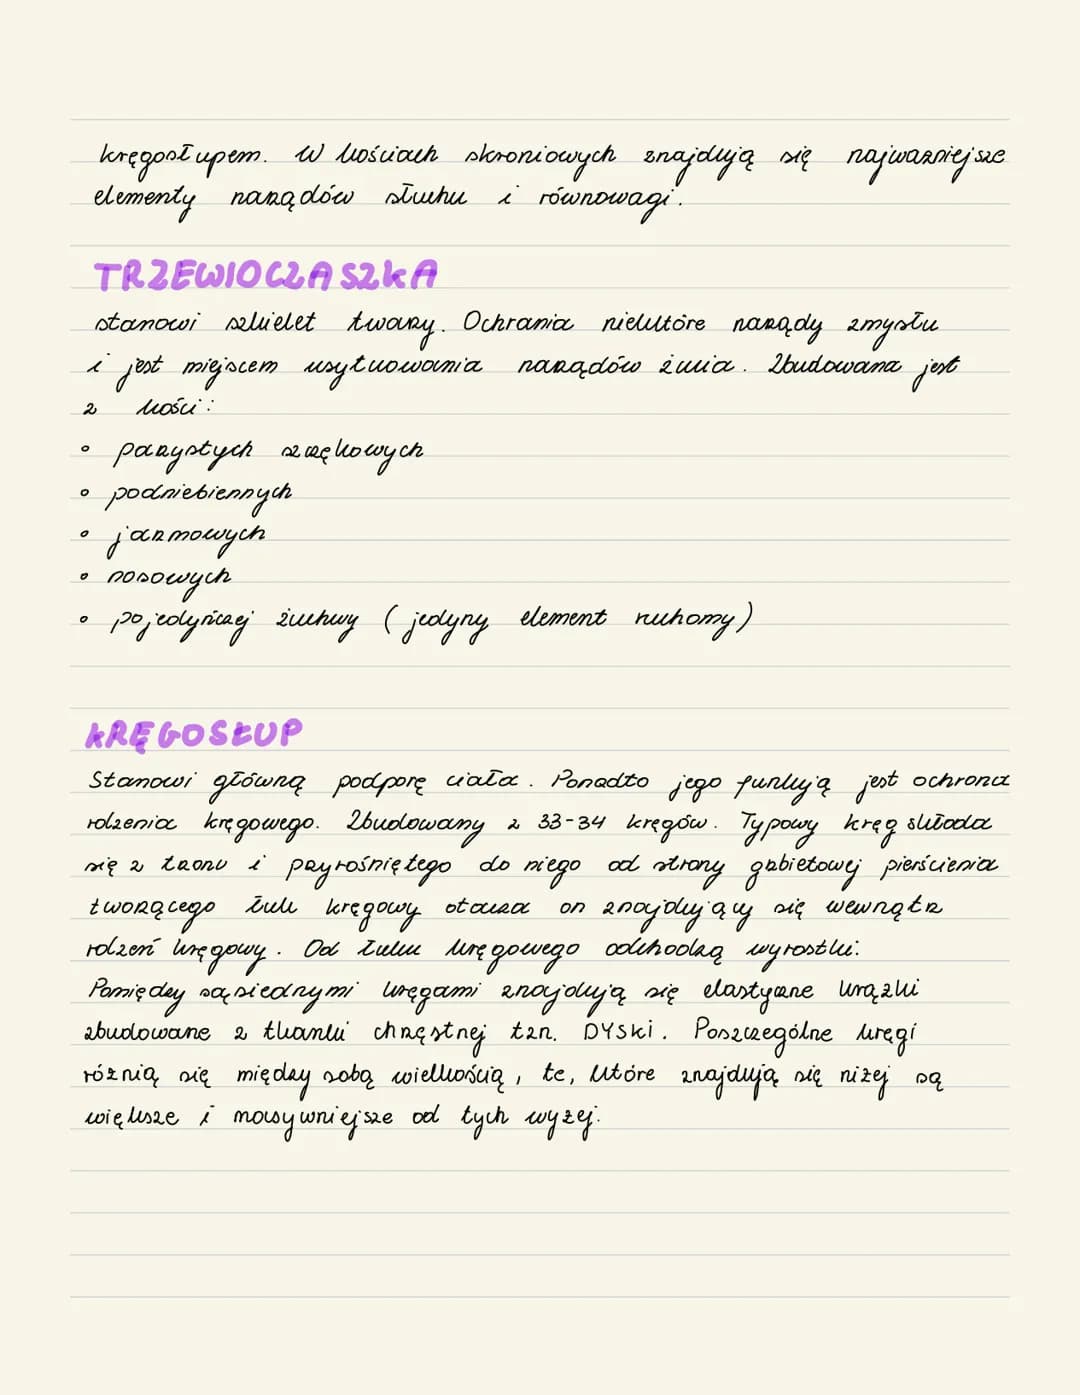 kręgosłupem. W kościach skroniowych znajdują się najważniejsze
elementy narządów słuchu i równowagi.
TRZEWIOCZASZKA
stanowi szkielet twarzy. Ochrania niektóre narządy zmysłu
i jest miejscem usytuowania narządów żucia. Zbudowana jest
z kości:
• parzystych szczękowych
• podniebiennych
• jarzmowych
• nosowych
• pojedyńczej żuchwy (jedyny element ruchomy)
KRĘGOSŁUP
Stanowi główną podporę ciała. Ponadto jego funkcją jest ochrona
rdzenia kręgowego. Zbudowany z 33-34 kręgów. Typowy kręg składa
się z trzonu i przyrośniętego do niego od strony grzbietowej pierścienia
tworzącego łuk kręgowy otacza on znajdujący się wewnątrz
rdzeń kręgowy. Od łuku kręgowego odchodzą wyrostki.
Pomiędzy sąsiednymi kręgami znajdują się elastyczne krążki
zbudowane z tkanki chrzęstnej tzn. DYSKI. Poszczególne kręgi
różnią się między sobą wielkością, te, które znajdują się niżej są
większe i masywniejsze od tych wyżej.